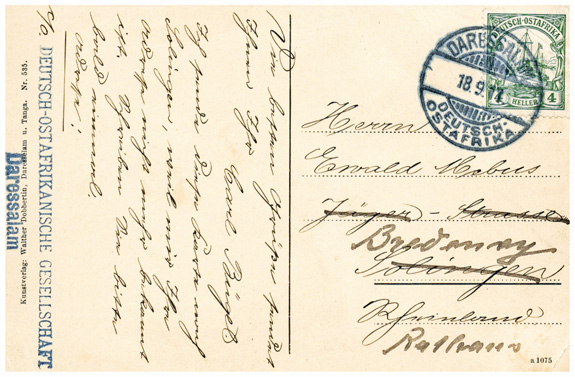 Die besten Grüße sendet
Ihnen Ihr
Carl
Ich sende diese Karte nach
Solingen, weil mir Ihre
Adresse nicht mehr bekannt
ist. Schreiben Sie bitte
bald einmal.
Adresse:
c/o DEUTSCH-OSTAFRIKANISCHE GESELLSCHAFT
Daressalam
Kunstverlag: Walther Dobbertin, Daressalam u. Tanga. Nr. 535.
DEUTSCH-OSTAFRIKA
4
HELLER
DARESSALAM
18.9.
DEUTSCH-
OSTAFRIKA
Herrn
Ewald Mebus
Jäger - Strasse
Bredeney
Solingen
Rheinland
Rathaus
a 1075